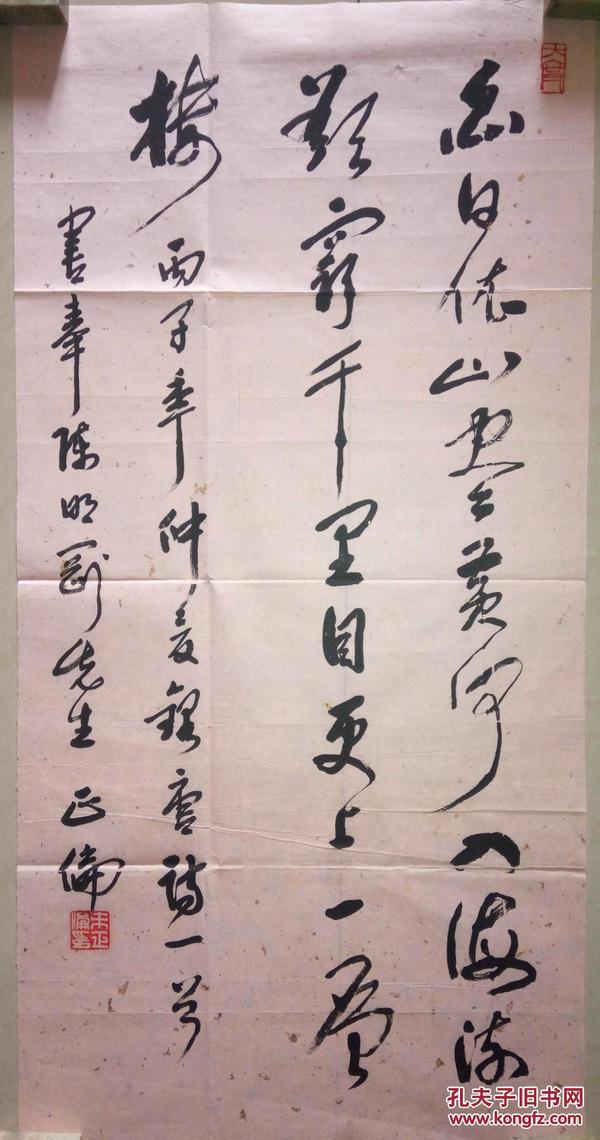 白日依山尽黄河入海流
欲穷千里目更上一层
楼 丙子年仲夏录唐诗一首
书奉陈明刚先生 正倫
朱正倫印
孔夫子旧书网
www.kongfz.com